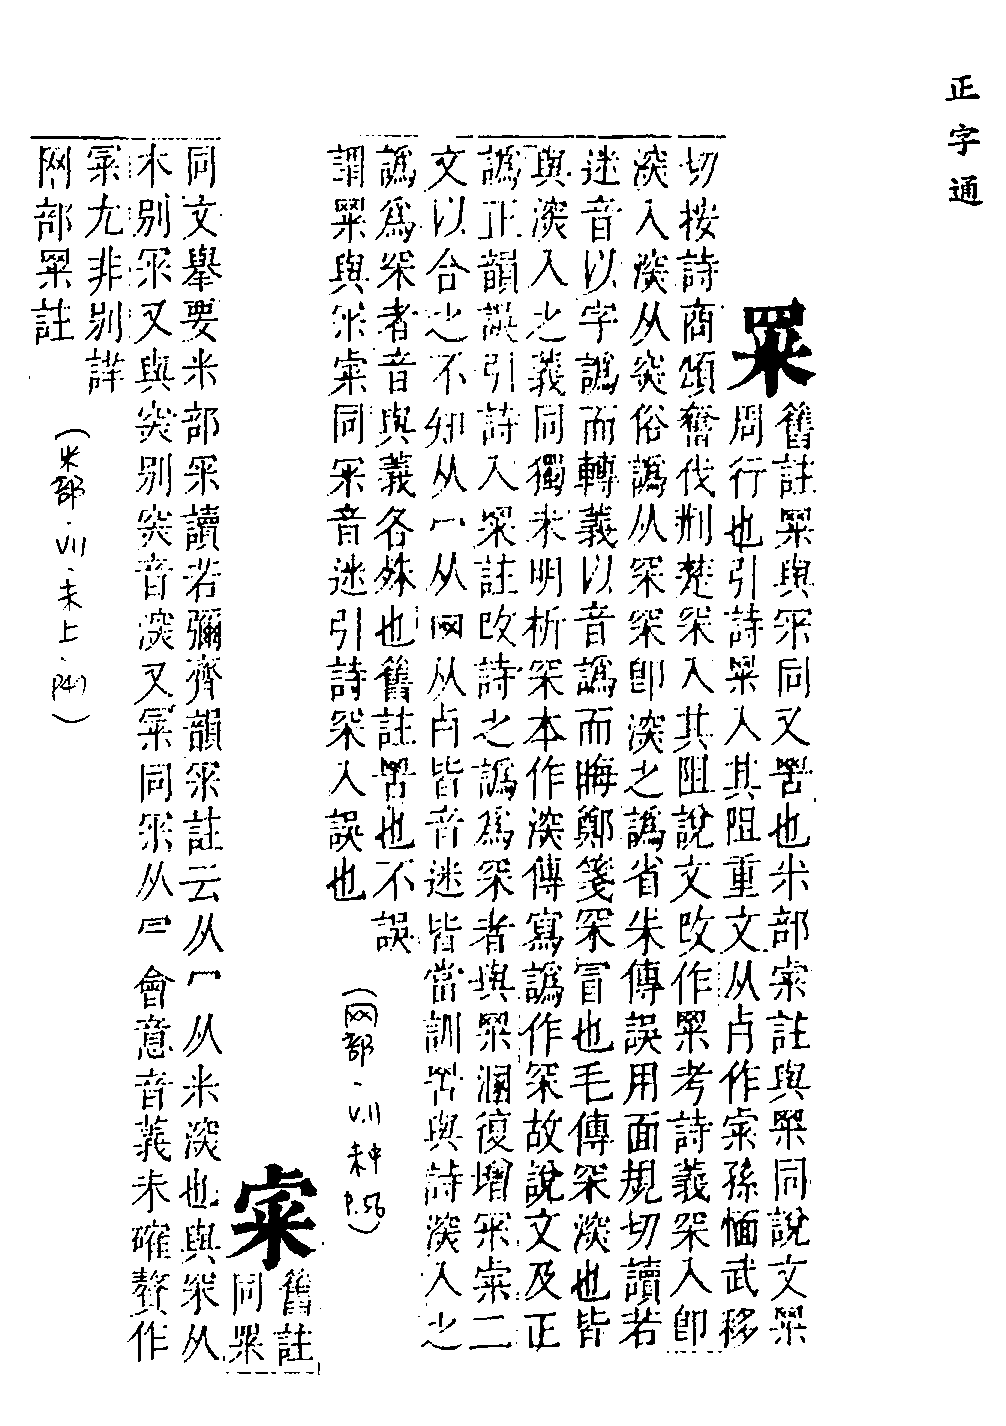 正字通
罙
舊註罙與冞同又罟也米部註與罙同說文罙
周行也引詩罙入其阻重文从卢作孫愐武移
切按詩商頌奮伐荆楚罙入其阻說文攺作罙考詩義罙入卽
深入深从突俗譌从罙罙卽深之譌省朱傳誤用面規切讀若
迷音以字譌而轉義以音譌而晦鄭箋罙冒也毛傳罙深也皆
與深入之義同獨未明析罙本作深傳寫譌作罙故說文及正
譌正韻誤引詩入罙註攺詩之譌爲罙者與罙溷復增冞二
文以合之不知从冖从网从卢皆音迷皆當訓罟與詩深入之
譌爲罙者音與義各殊也舊註罟也不誤
謂罙與冞同罙音迷引詩罙入誤也
(网部·VII·未中 P.56)
舊註
同罙
同文舉要米部冞讀若彌齊韻冞註云从冖从米深也與罙从
木別冞又與突別突音深又同冞从 會意音義未確贅作
尤非別詳
网部罙註
(米部·VII·未上·P47)